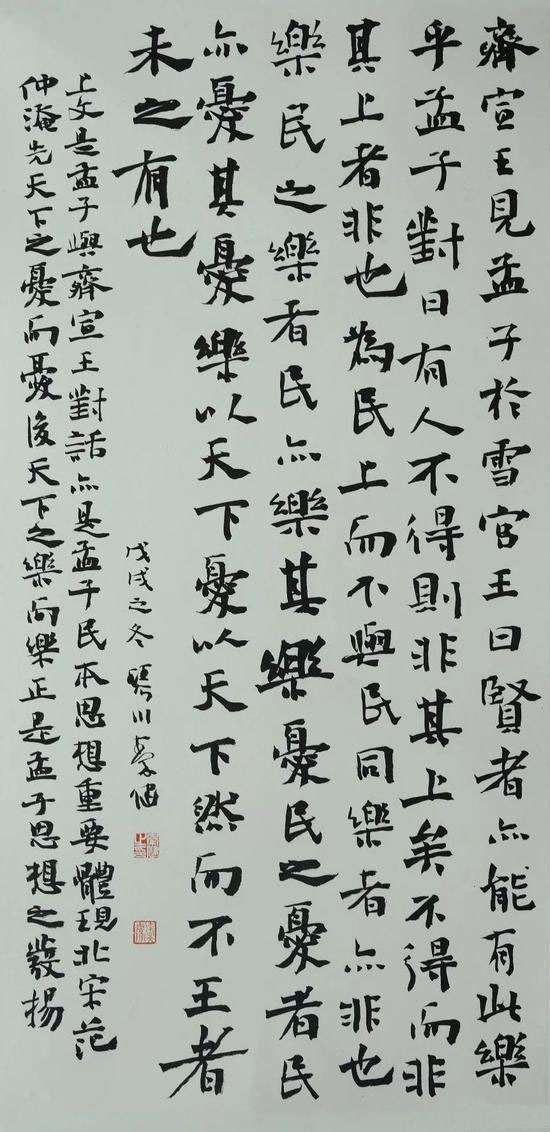 齊宣王見孟子於雪宮王曰賢者亦能有此樂
乎孟子對曰有人不得則非其上矣不得而非
其上者非也為民上而不與民同樂者亦非也
樂民之樂者民亦樂其樂憂民之憂者民
亦憂其憂樂以天下憂以天下然而不王者
未之有也
戊戌之冬
上文是孟子與齊宣王對話亦是孟子民本思想重要體現北宋范
仲淹先天下之憂而憂後天下之樂而樂正是孟子思想之發揚